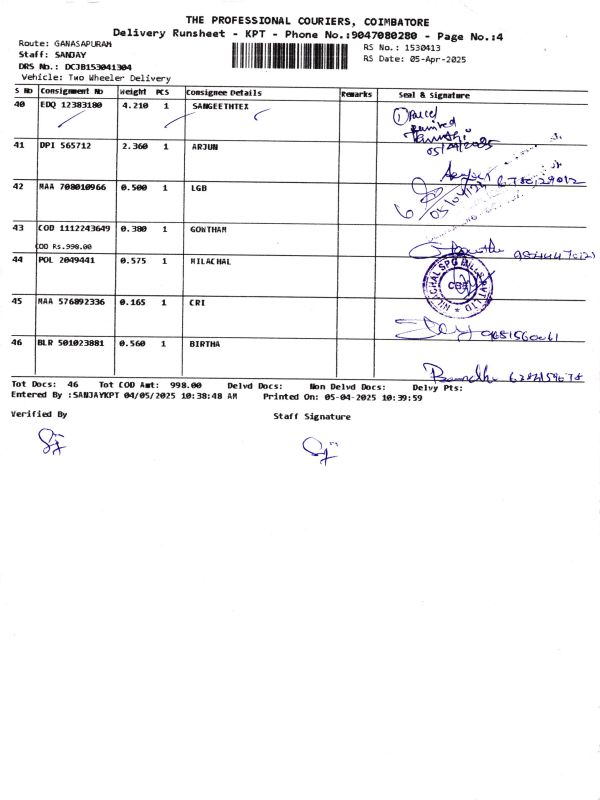 THE PROFESSIONAL COURIERS, COIMBATORE
Delivery Runsheet - KPT - Phone No.:9047080280 - Page No.:4
Route: GANASAPURAM
Staff: SANJAY
DRS No.: DCJB153041304
Vehicle: Two Wheeler Delivery
RS No.: 1530413
RS Date: 05-Apr-2025
S No Consignment No Weight PCS Consignee Details Remarks Seal & Signature
40 EDQ 12383180 4.210 1 SANGEETHTEX
1 Parcel
05/04/2025
41 DPI 565712 2.360 1 ARJUN
42 MAA 708010966 0.500 1 LGB
43 COD 1112243649 0.380 1 GONTHAM
COD Rs.998.00
44 POL 2049441 0.575 1 NILACHAL
NILACHAL SPG MILLS PVT LTD
CBE
45 MAA 576892336 0.165 1 CRI
46 BLR 501023881 0.560 1 BIRTHA
Tot Docs: 46 Tot COD Amt: 998.00 Delvd Docs: Non Delvd Docs: Delvy Pts:
Entered By :SANJAYKPT 04/05/2025 10:38:48 AM Printed On: 05-04-2025 10:39:59
Verified By Staff Signature